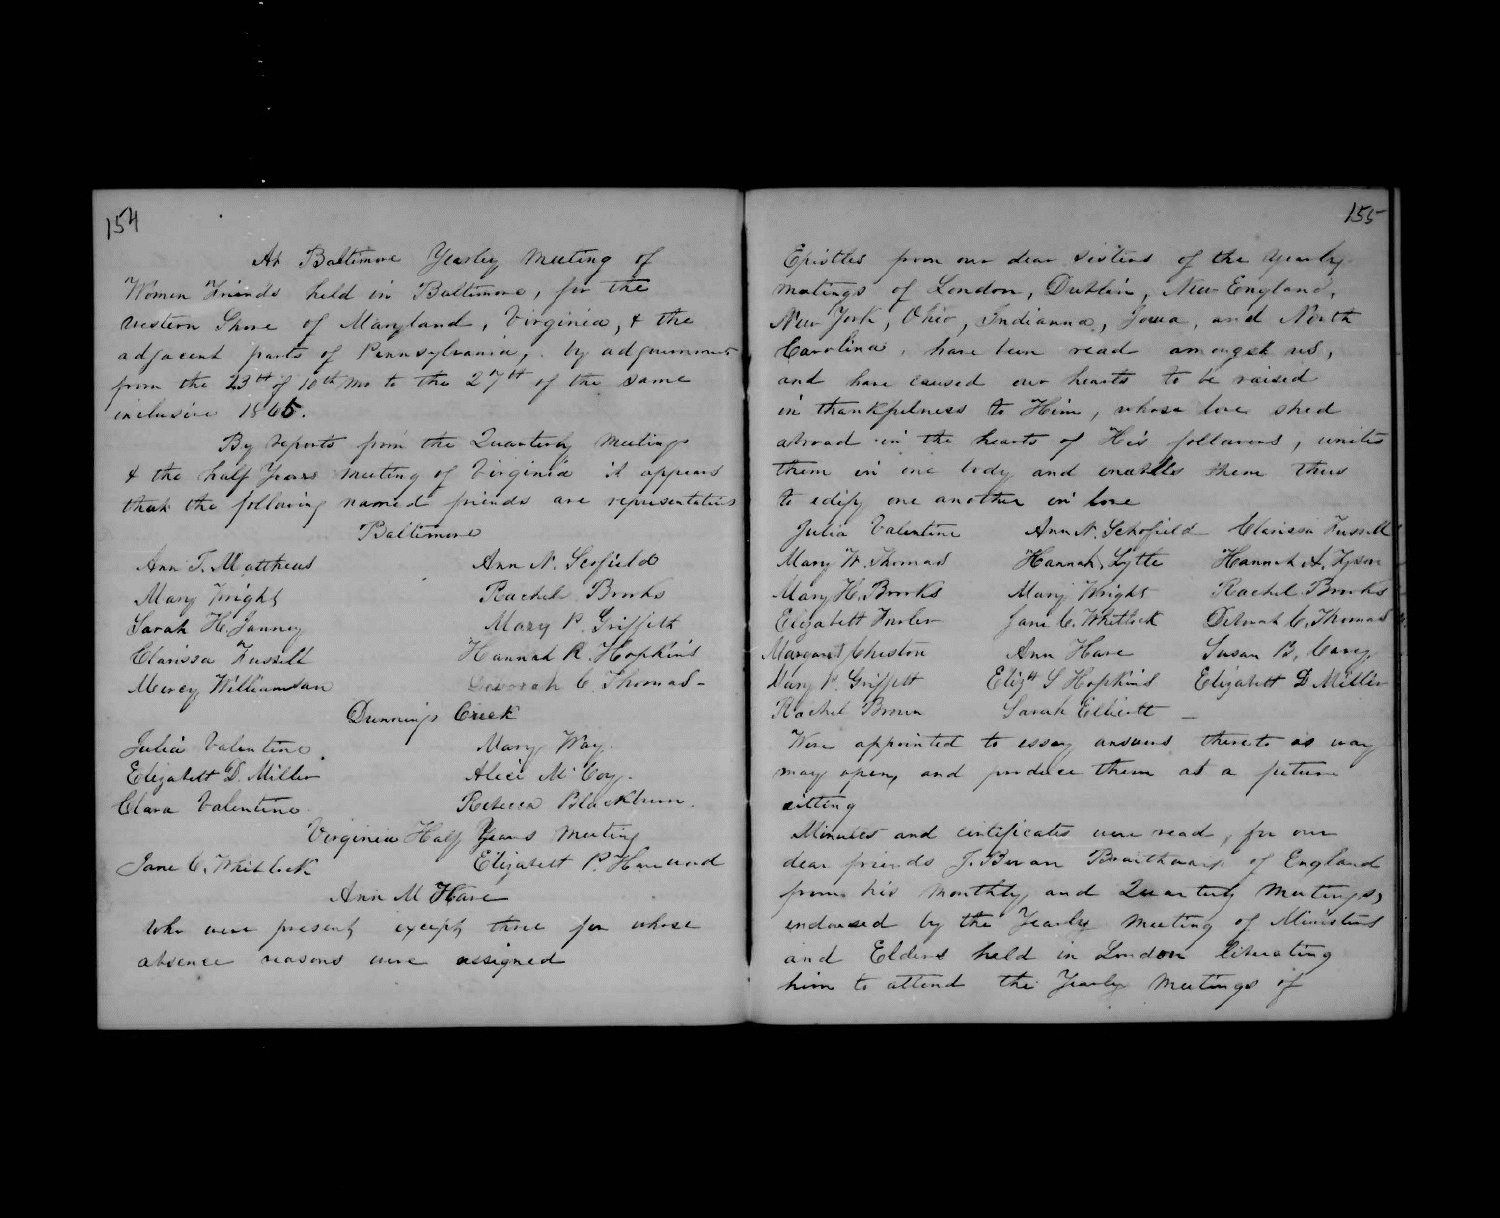 154
At Baltimore Yearly Meeting of
Women Friends held in Baltimore, for the
western Shore of Maryland, Virginia, & the
adjacent parts of Pennsylvania, by adjournments
from the 23th of 10th mo to the 27th of the same
inclusive 1865.
By reports from the Quarterly Meetings
& the half Years Meeting of Virginia it appears
that the following named friends are representatives
Baltimore
Ann T. Matthews Ann N. Scofield
Mary Wright Rachel Brooks
Sarah H. Janney Mary P. Griffith
Clarissa Fussell Hannah R. Hopkins
Mercy Williamson Deborah C. Thomas-
Dunnings Creek
Julia Valentine Mary Way.
Elizabeth D. Miller Alice McCoy.
Clara Valentine Rebecca Blackburn.
Virginia Half Years Meeting
Jane C. Whitlock Elizabeth P. Harwood
Ann M Hare
who were present except three for whose
absence reasons were assigned
155
Epistles from our dear sisters of the Yearly
meetings of London, Dublin, New England,
New York, Ohio, Indianna, Iowa, and North
Carolina, have been read amongst us,
and have caused our hearts to be raised
in thankfulness to Him, whose love shed
abroad in the hearts of His followers, unites
them in one body and enables them thus
to edify one another in love
Julia Valentine Ann N. Schofield Clarissa Fussell
Mary W. Thomas Hannah Lytle Hannah A. Tyson
Mary H. Brooks Mary Wright Rachel Brooks
Elizabeth Fowler Jane C. Whitlock Deborah C. Thomas
Margaret Cheston Ann Hare Susan B. Carey
Mary P. Griffith Elizth S Hopkins Elizabeth D Miller
Rachel Brown Sarah Ellicott -
Were appointed to essay answers thereto as way
may open, and produce them at a future
sitting
Minutes and certificates were read, for our
dear friends J. Bevan Braithwait of England
from his Monthly and Quarterly Meetings,
endorsed by the Yearly Meeting of Ministers
and Elders held in London liberating
him to attend the Yearly Meetings of